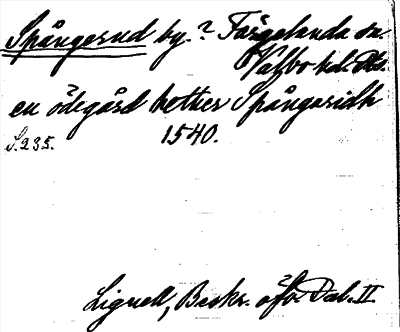 Spångerud by.? Färgelanda sn.
Valbo hd. Ds.
en ödegård hether Spångaridh
S. 235. 1540.
Lignell, Beskr. öfv. Dal. II.